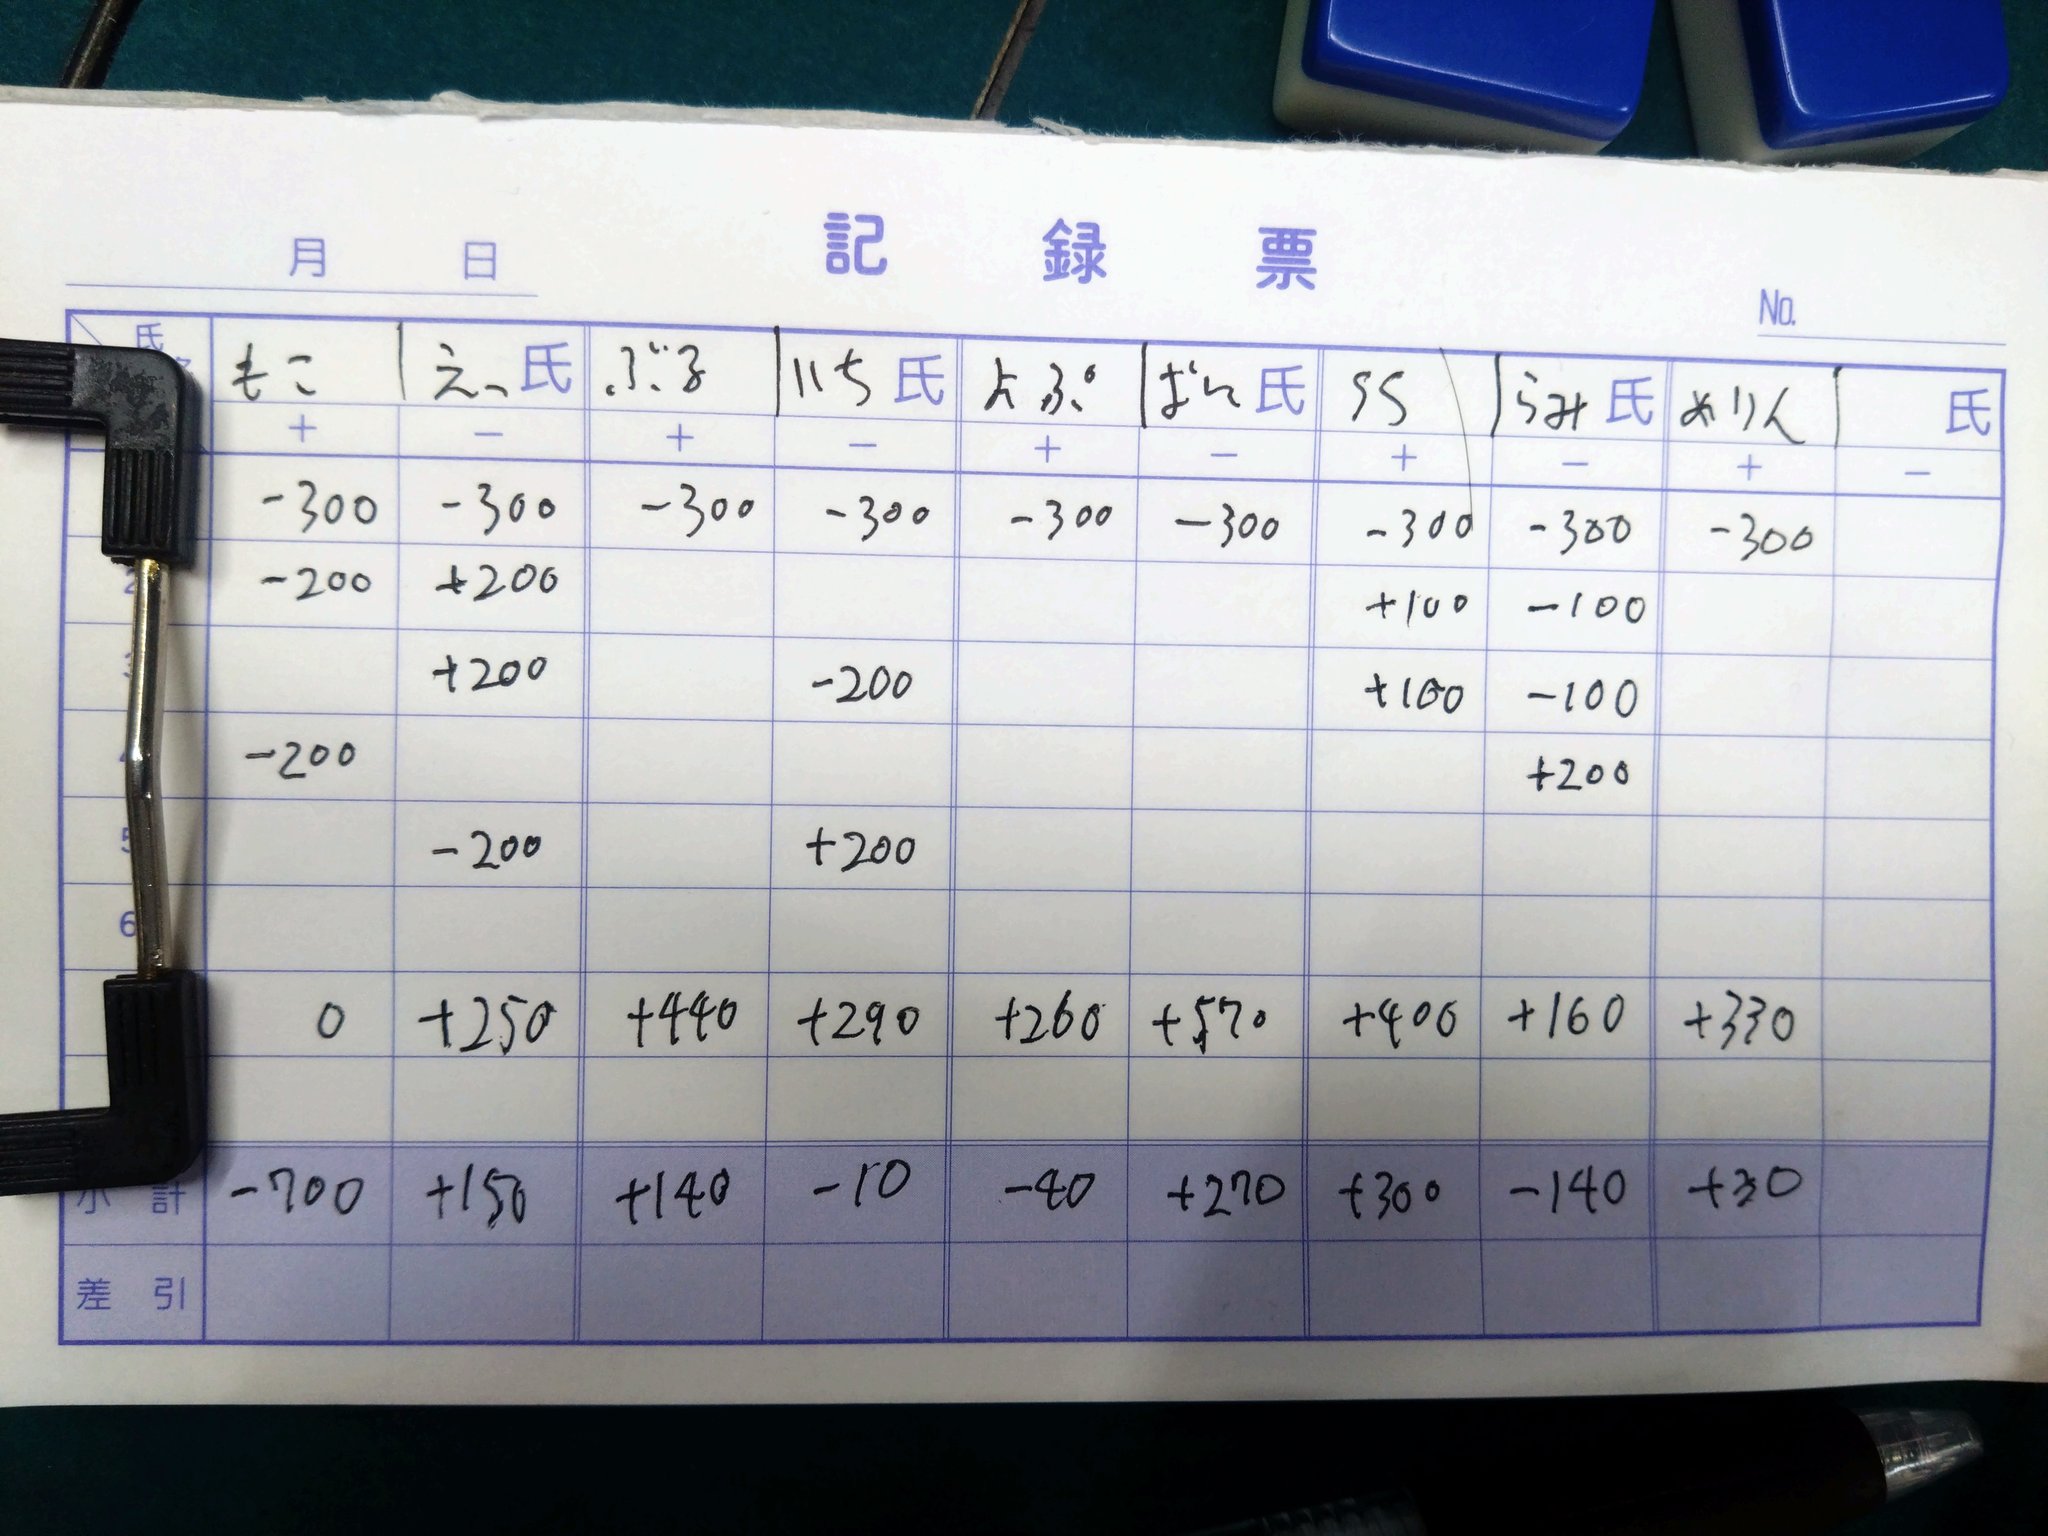 月 日 記録票
No.
氏 もこ えっ 氏 ぶる いち 氏 よぷ ばん 氏 らみ 氏 めりん 氏
+ − + − + − + − + −
-300 -300 -300 -300 -300 -300 -300 -300 -300
-200 +200 +100 -100
+200 -200 +100 -100
-200 +200
5 -200 +200
6
0 +250 +440 +290 +260 +570 +400 +160 +330
小計 -700 +150 +140 -10 -40 +270 +300 -140 +30
差引